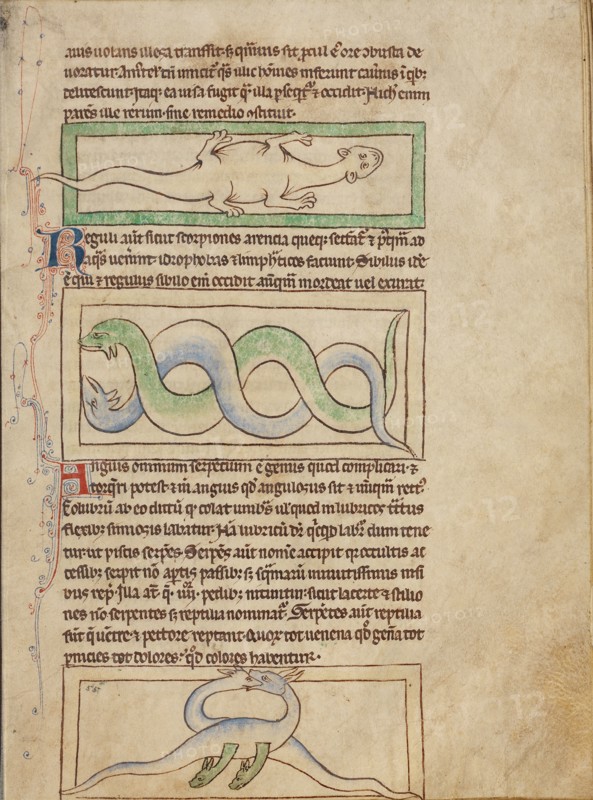 auis uolans illesa transsit. s; quāuis sit pcul eꝰ ore ɔbusta de
uoratur. A mustel' tn̄ uincit᷑ q̄s illic hōines inferunt cauīnis ī qib;
delitescunt. Itaq; ea uisa fugit q̄ illa pseqt᷑ ⁊ occidit. Nich' enim
parēs ille rerum sine remedio ɔstituit.
Reguli aūt sicut scorpiones arencia queq; sectāt᷑ ⁊ pꝰtqm̄ ad
aq̄s uenīnt idrophobas ⁊ limphīticos faciunt. Sibilus idē
ē qui ⁊ regulus sibilo em̄ occidit anq̄m mordeat uel exurat.
Anguis omnium serpentium ē genus quod complicari ⁊
torqri potest ⁊ īn anguis qd̄ angulosus sit ⁊ nūq̄m rectꝰ.
Colubrū ab eo dictū q̄ colat umbs̄ ul' quod in lubricos tͣctus
flexib; sinuosis labatur. Nā lubricū dr̄ qicqd labit᷑ dum tene
tur ut piscis serpēs. Serpēs aūt nomē accipit qꝛ occultis ac
cessib; serpit nō aptis passib; s; sqͣmarū minutissimis nisi
bus repit. Illa aūt q̄ .iiii. pedib; nitūntur sicut lacerte ⁊ stilio
nes nō serpentes s; reptilia nominat᷑. Serpētes aūt reptilia
sūt q̄ uentre ⁊ pectore reptant. Quoꝝ tot uenena qͦt gen̄a tot
pnicies tot dolores qͦt colores habentur.